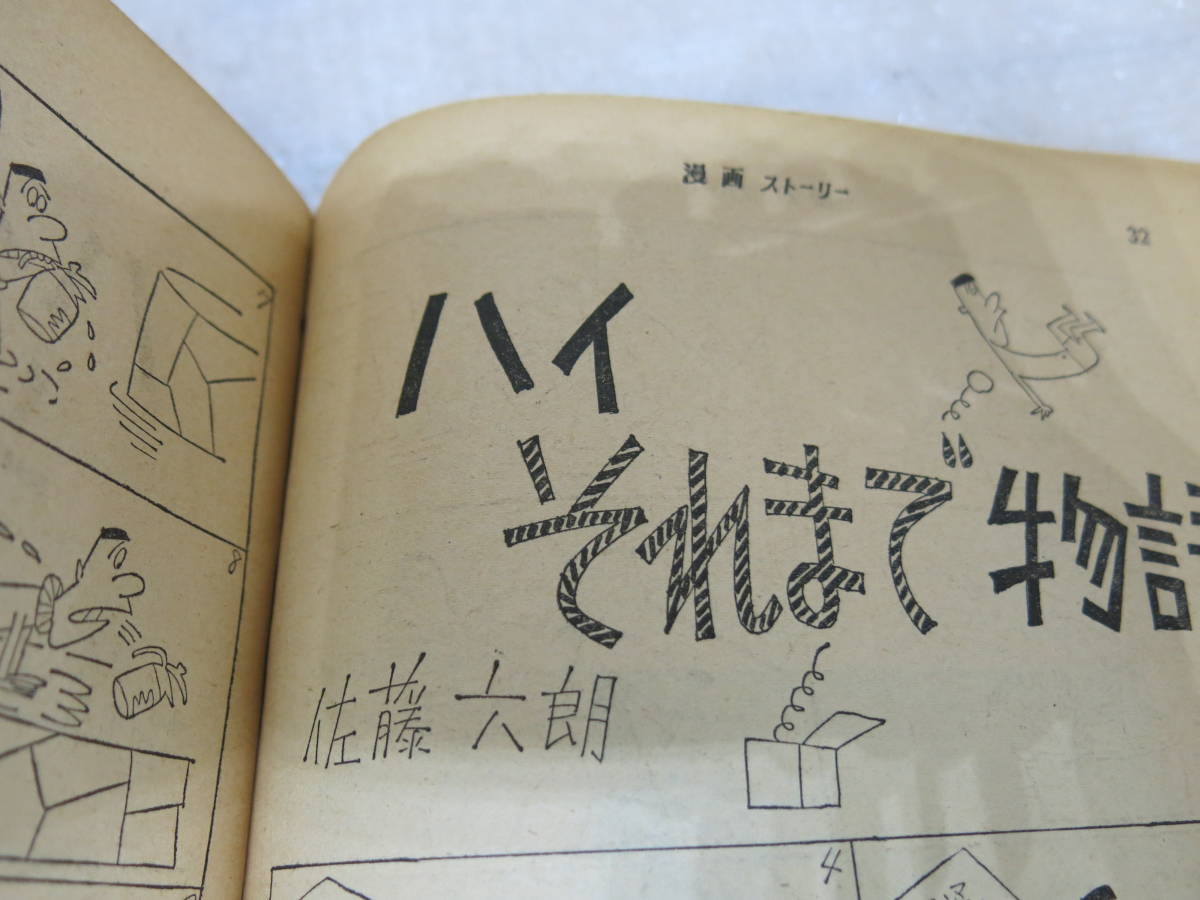 漫画 ストーリー
32
ハイ
それまで物語
佐藤六朗
7
8
4